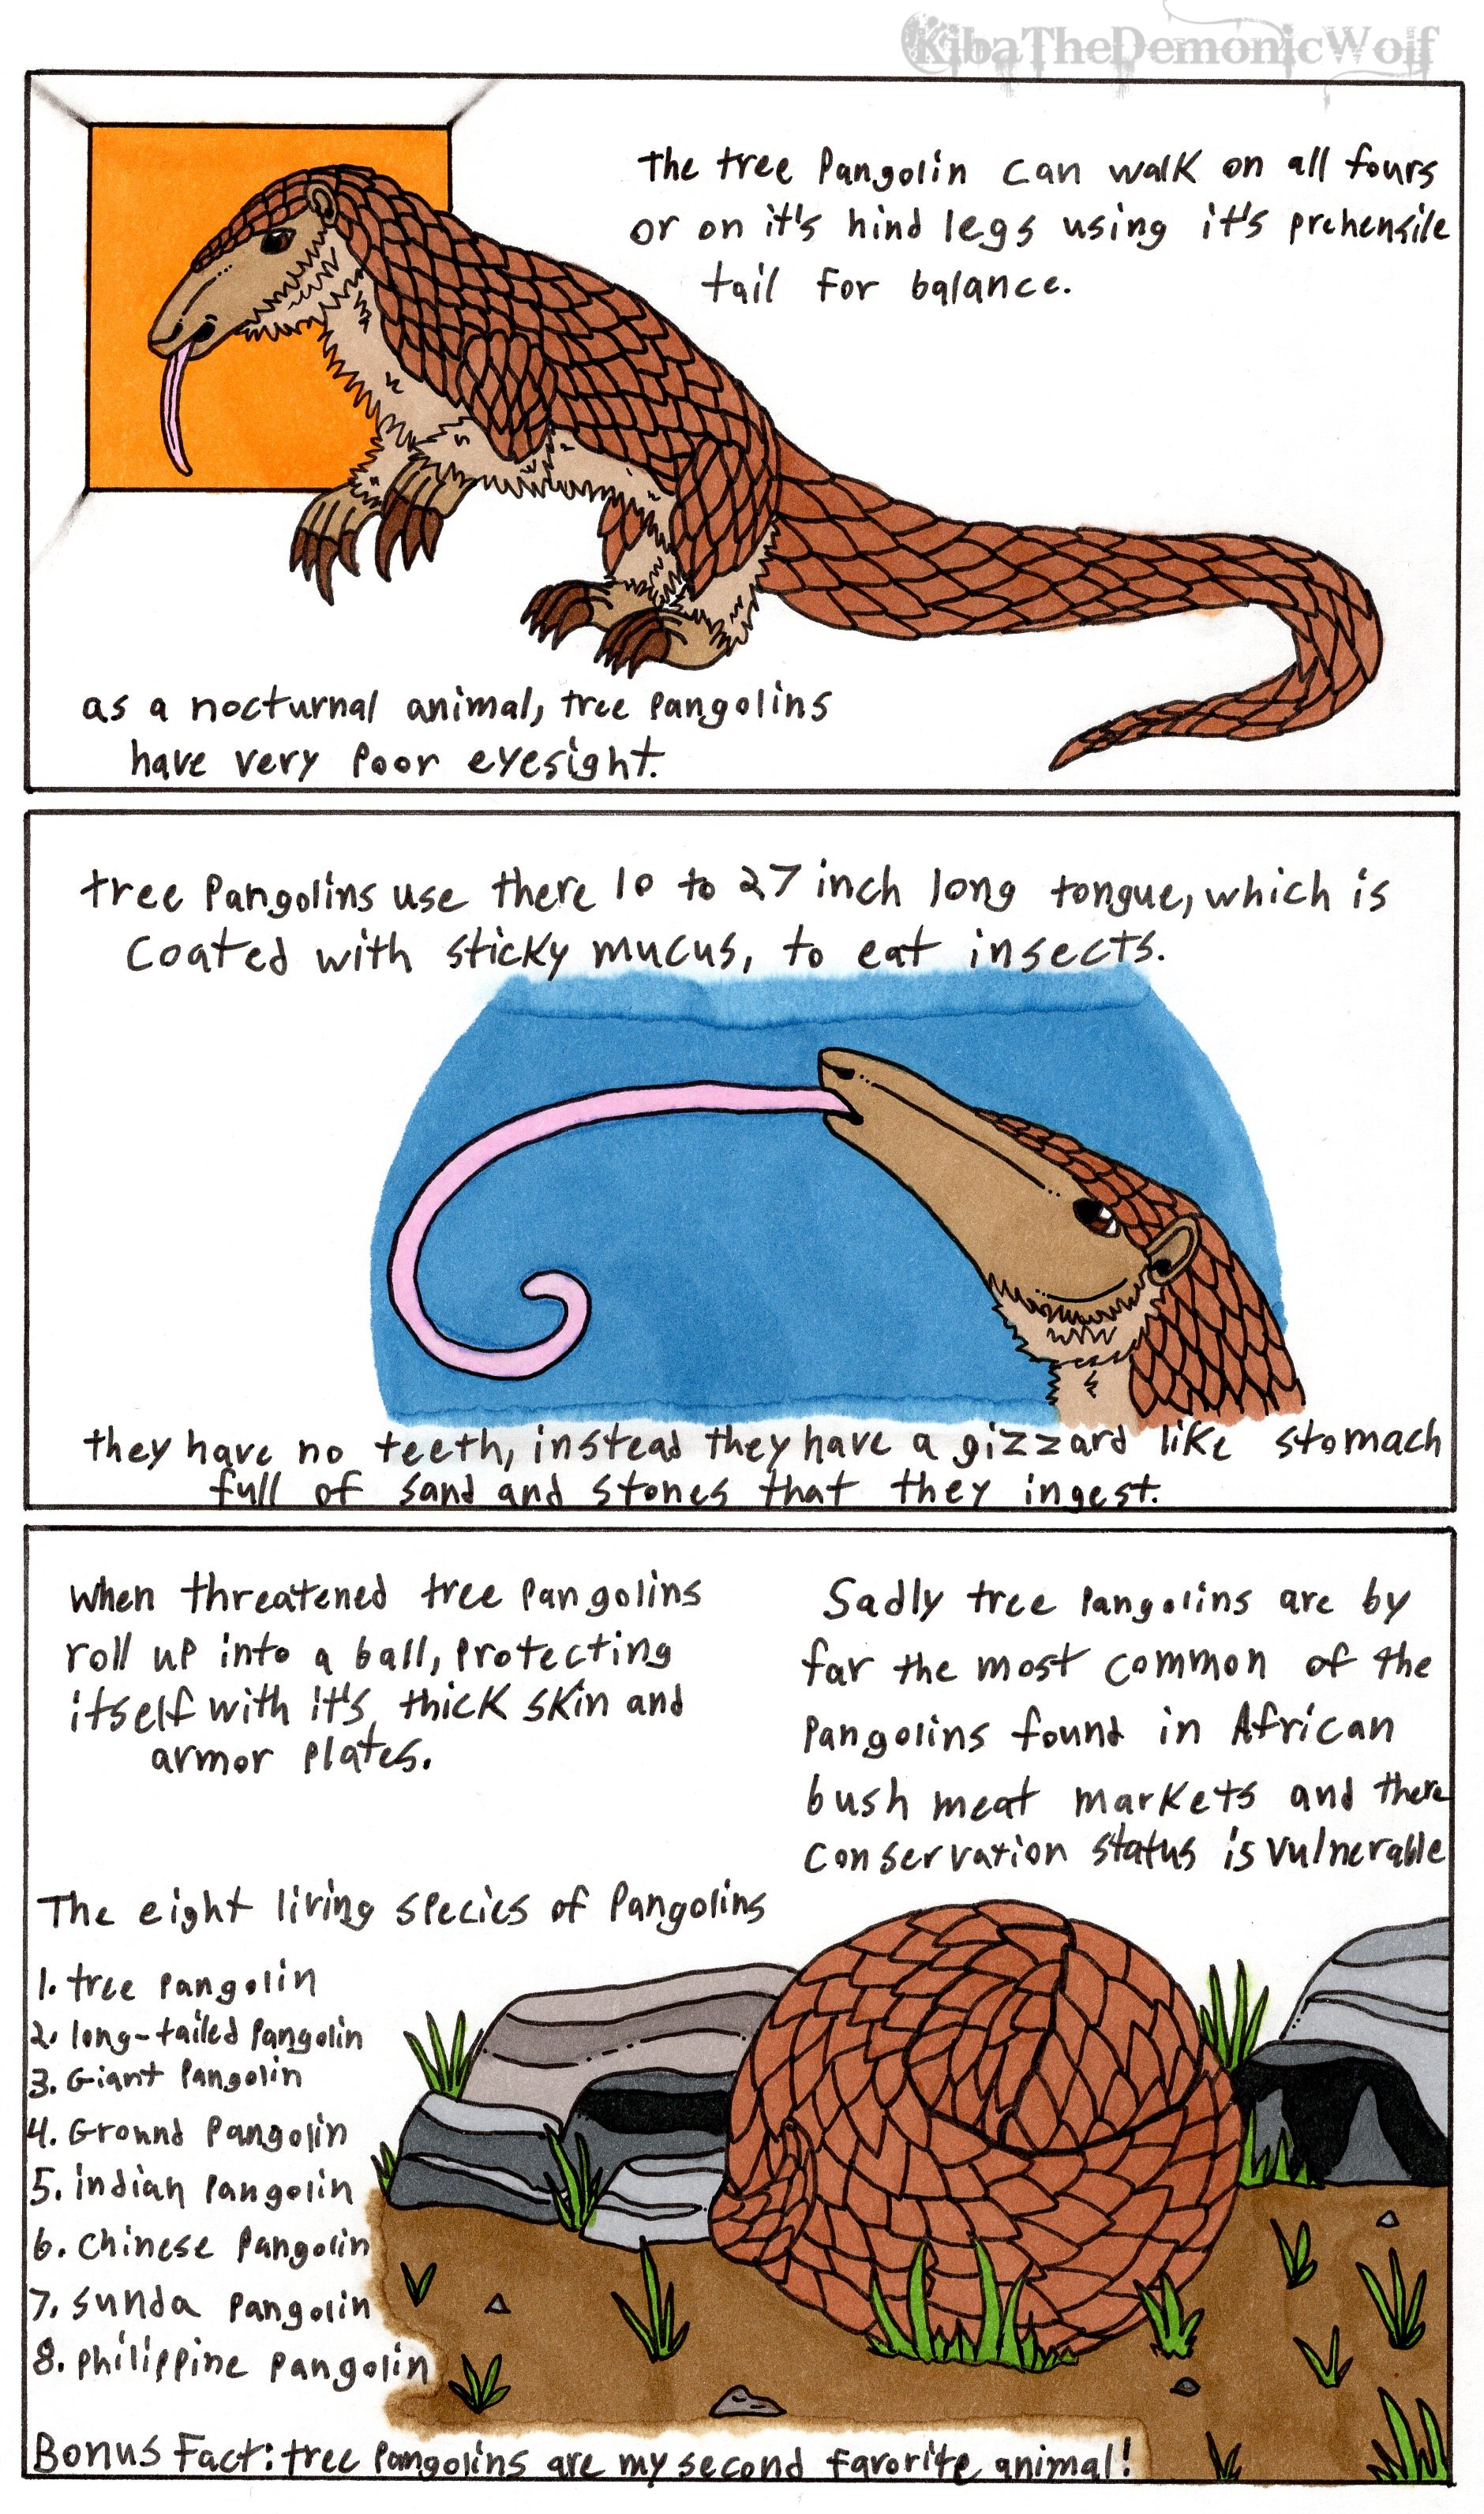 KibaTheDemonicWolf
the tree Pangolin can walk on all fours
or on it's hind legs using it's prehensile
tail for balance.
as a nocturnal animal, tree pangolins
have very poor eyesight.
tree Pangolins use there 10 to 27 inch long tongue, which is
coated with sticky mucus, to eat insects.
they have no teeth, instead they have a gizzard like stomach
full of sand and stones that they ingest.
when threatened tree pangolins
roll up into a ball, protecting
itself with it's thick skin and
armor plates.
Sadly tree pangolins are by
far the most common of the
Pangolins found in African
bush meat markets and there
conservation status is vulnerable
The eight living species of Pangolins
1. tree pangolin
2. long-tailed Pangolin
3. Giant Pangolin
4. Ground Pangolin
5. indian Pangolin
6. chinese Pangolin
7. sunda Pangolin
8. philippine pangolin
Bonus Fact: tree Pangolins are my second favorite animal!